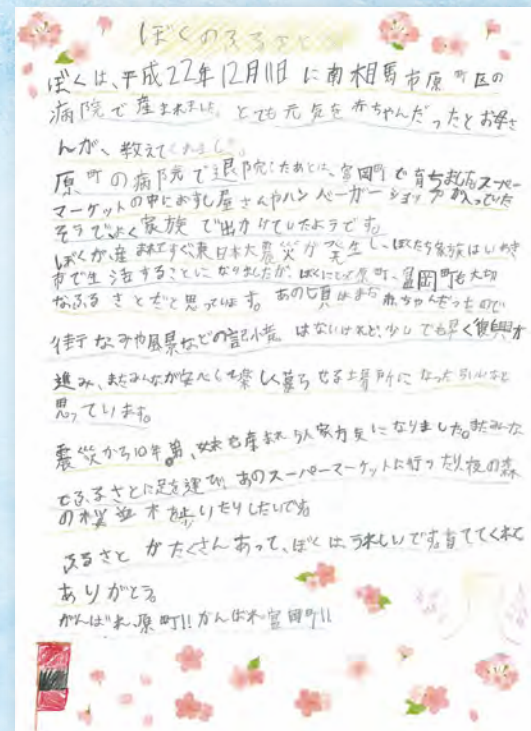 ぼくのふるさと
ぼくは、平成22年12月11日に南相馬市原町区の
病院で産まれました。とても元気な赤ちゃんだったとお母さ
んが、教えてくれました。
原町の病院で退院したあとは、富岡町で育ちました。スーパー
マーケットの中におすし屋さんやハンバーガーショップが入っていた
そうでよく家族で出かけていたようです。
ぼくが産まれてすぐ東日本大震災が発生し、ぼくたち家族はいわき
市で生活することになりましたが、ぼくにとって原町、富岡町も大切
なふるさとだと思っています。あの頃はまだ赤ちゃんだったので
街なみや風景などの記憶はないけれど、少しでも早く復興が
進み、またみんなが安心して楽しく暮らせる場所になったらいいなと
思っています。
震災から10年。弟、妹も産まれ5人家族になりました。またみんな
でふるさとに足を運び、あのスーパーマーケットに行ったり、夜の森
の桜並木を歩いたりしたいです。
ふるさとがたくさんあって、ぼくはうれしいです。育ててくれて
ありがとう。
がんばれ原町!!がんばれ富岡町!!